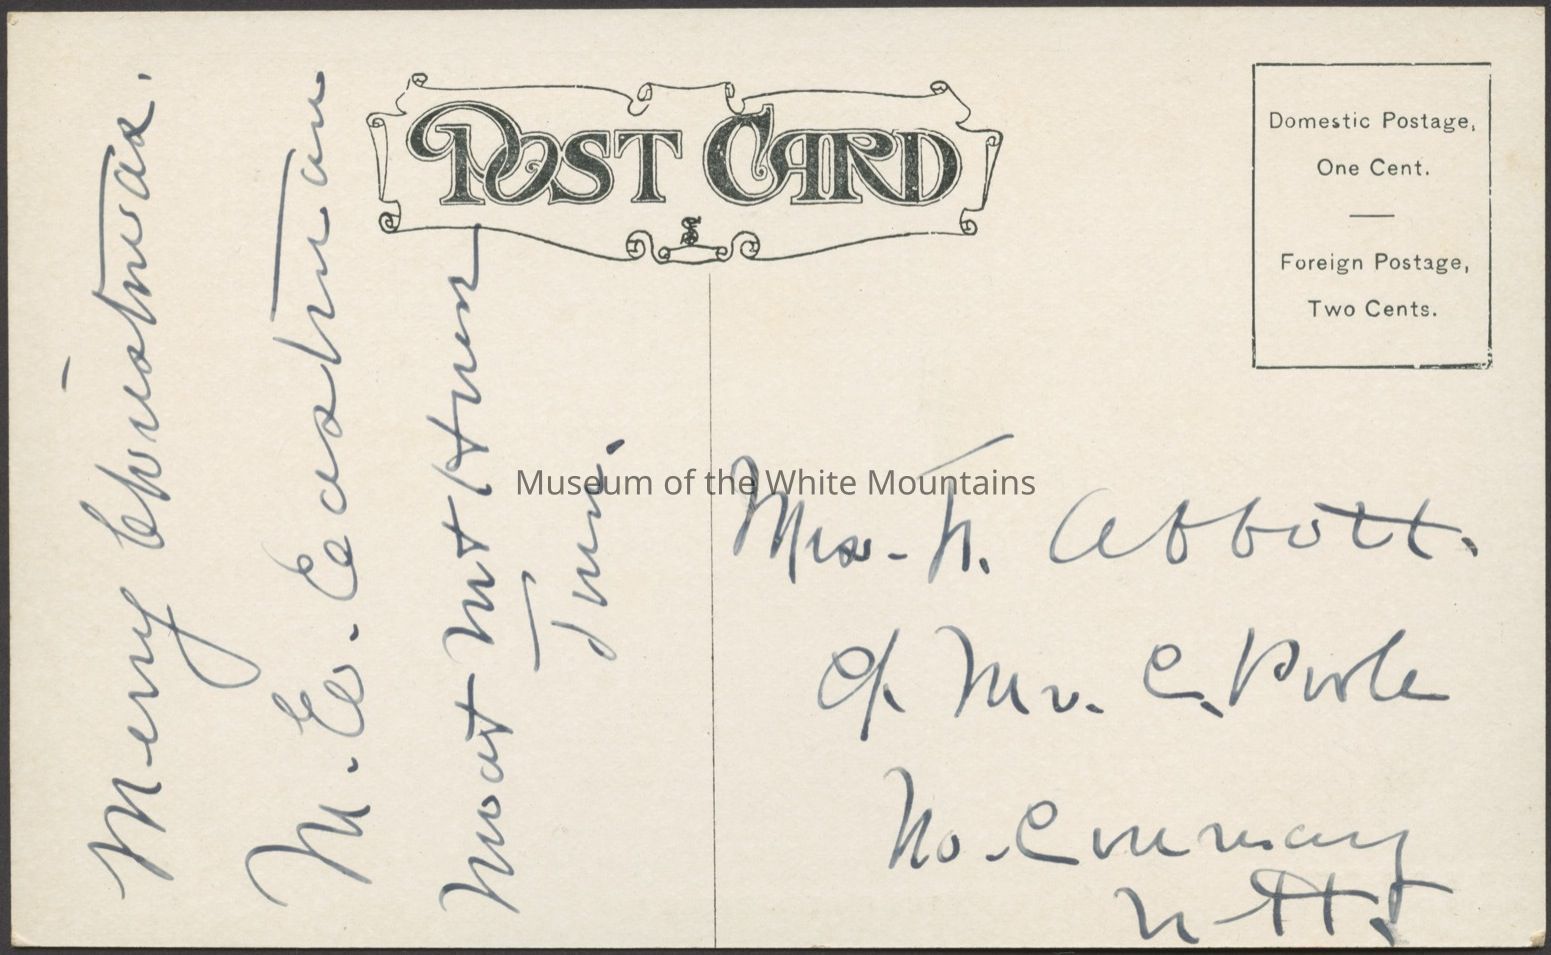 POST CARD
Domestic Postage,
One Cent.
Foreign Postage,
Two Cents.
Merry Christmas.
M. E. Eastman
Moat Mt House
Museum of the White Mountains
Mrs. H. Abbott.
c/. Mr. C. Poole
No. Conway
N H